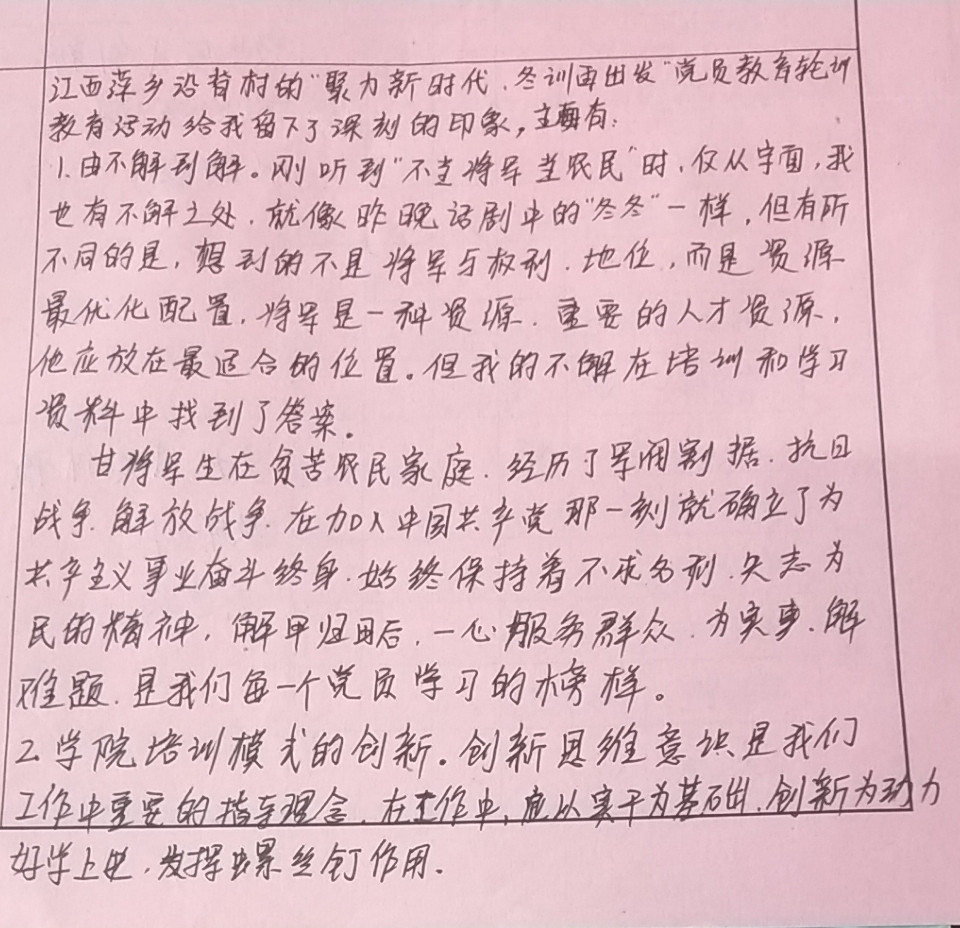 江西萍乡沿背村的“聚力新时代,冬训再出发”党员教育轮训
教育活动给我留下了深刻的印象,主要有:
1.由不解到解。刚听到“不当将军当农民”时,仅从字面,我
也有不解之处,就像昨晚话剧中的“冬冬”一样,但有所
不同的是,想到的不是将军与权利、地位,而是资源
最优化配置,将军是一种资源,重要的人才资源,
他应放在最适合的位置。但我的不解在培训和学习
资料中找到了答案。
甘将军生在贫苦农民家庭,经历了军阀割据、抗日
战争、解放战争,在加入中国共产党那一刻就确立了为
共产主义事业奋斗终身,始终保持着不求名利、矢志为
民的精神,解甲归田后,一心服务群众,为实事、解
难题,是我们每一个党员学习的榜样。
2.学院培训模式的创新。创新思维意识是我们
工作中重要的指导理念,在工作中,应以实干为基础,创新为动力
好学上进,发挥螺丝钉作用.